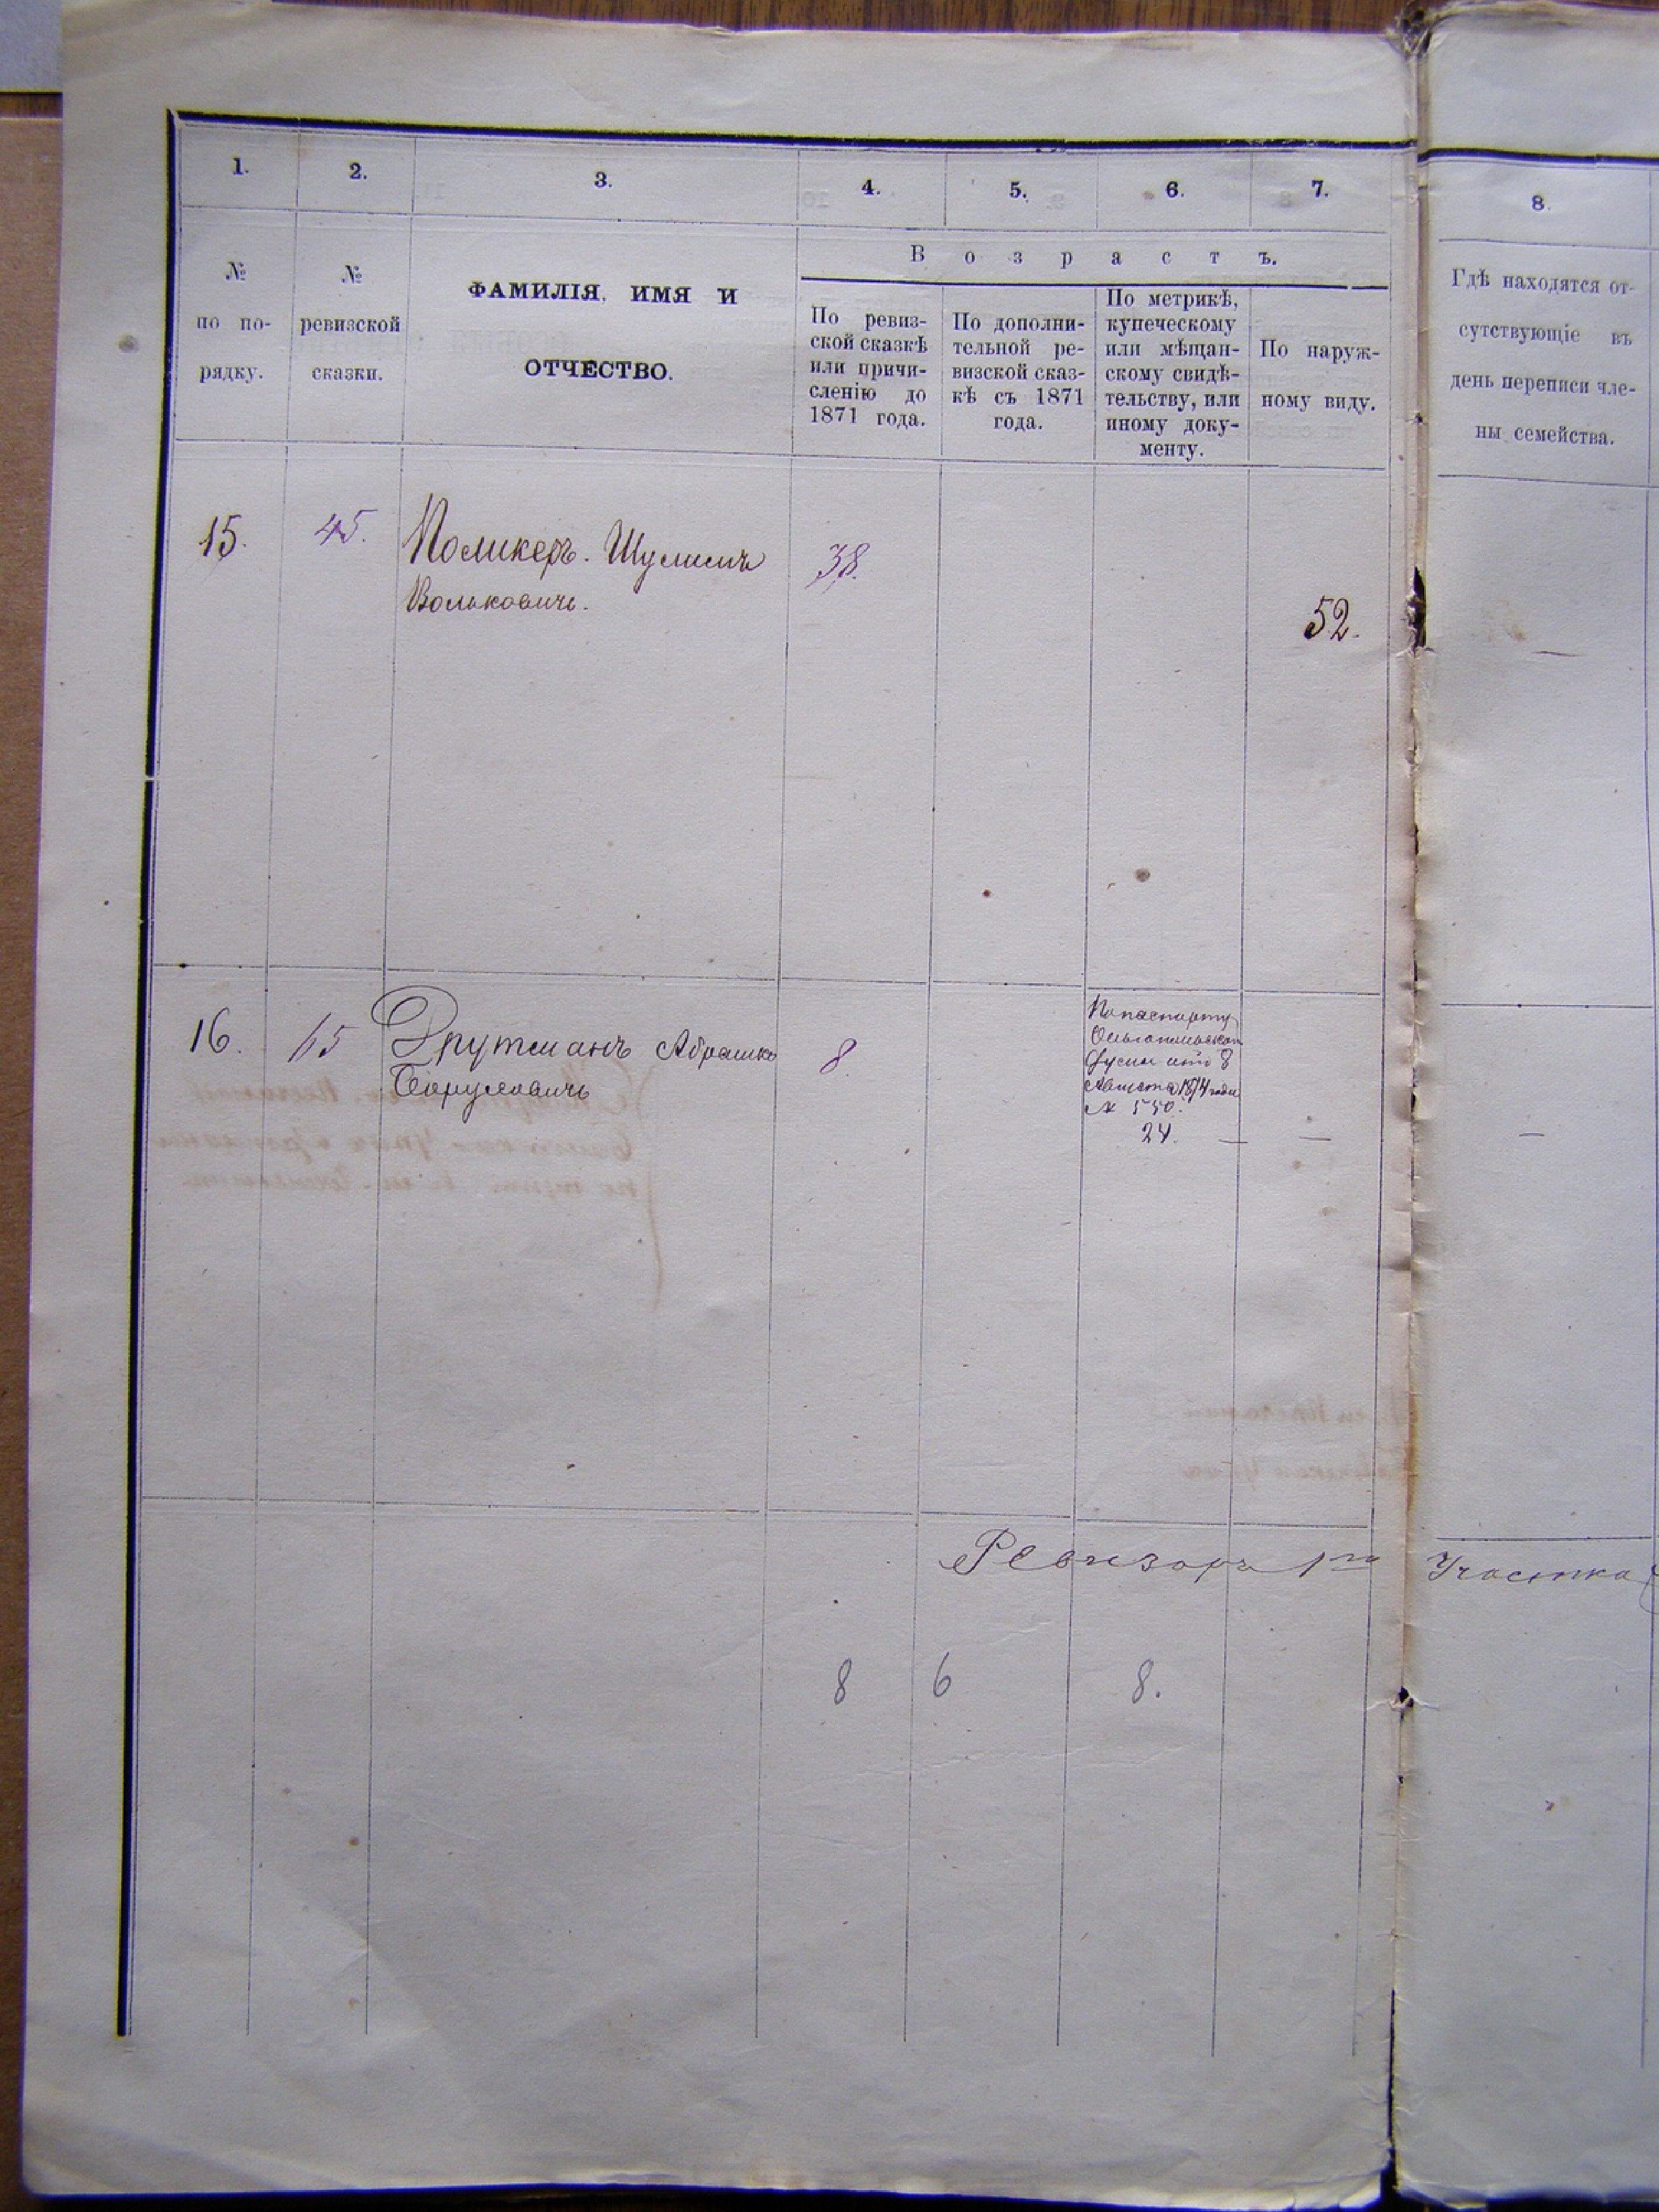 1.
2.
3.
4.
5.
6.
7.
8.
№ по по-
рядку.
№ ревизской
сказки.
ФАМИЛІЯ, ИМЯ И
ОТЧЕСТВО.
Возрастъ.
По ревиз-
ской сказкѣ
или причи-
сленію до
1871 года.
По дополни-
тельной ре-
визской сказ-
кѣ съ 1871
года.
По метрикѣ,
купеческому
или мѣщан-
скому свидѣ-
тельству, или
иному доку-
менту.
По наруж-
ному виду.
Гдѣ находятся от-
сутствующіе въ
день переписи чле-
ны семейства.
15.
45.
Поликеръ. Шулимъ
Вольковичъ.
38.
52.
—
16.
65
Друтманъ Абрашко
Борухович
8.
По паспорту
Ольгопольской
Думы отъ 8
Августа 1874 года
№ 550.
24. —
—
—
Ревизоръ 1го Участка
8 6 8.